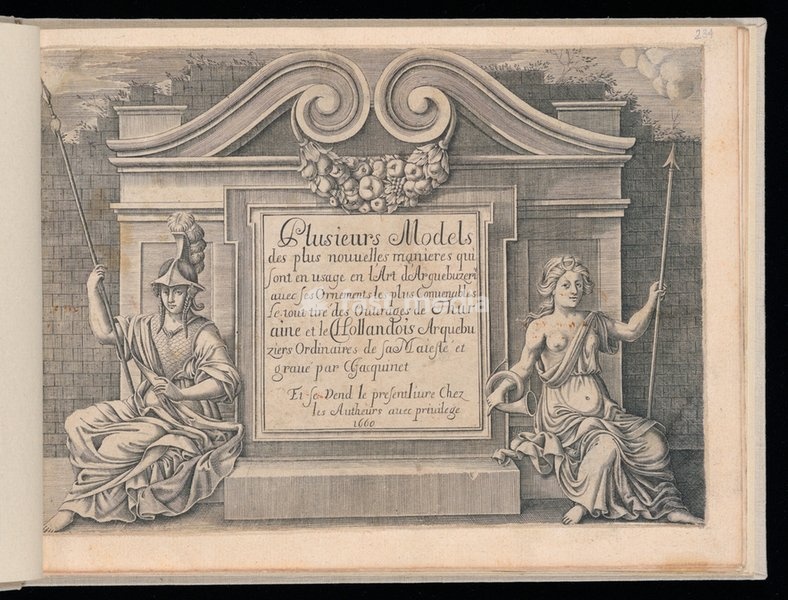 234
Plusieurs Models
des plus nouuelles manieres qui
sont en usage en l'Art d'Arquebuzerie
auec ses Ornements les plus Conuenables
Le tout tiré des Ouurages de Thur
aine et le Hollandois Arquebu
ziers Ordinaires de sa Maiesté et
graué par C Jacquinet
Et se Vend le present liure Chez
les Autheurs auec priuilege
1660